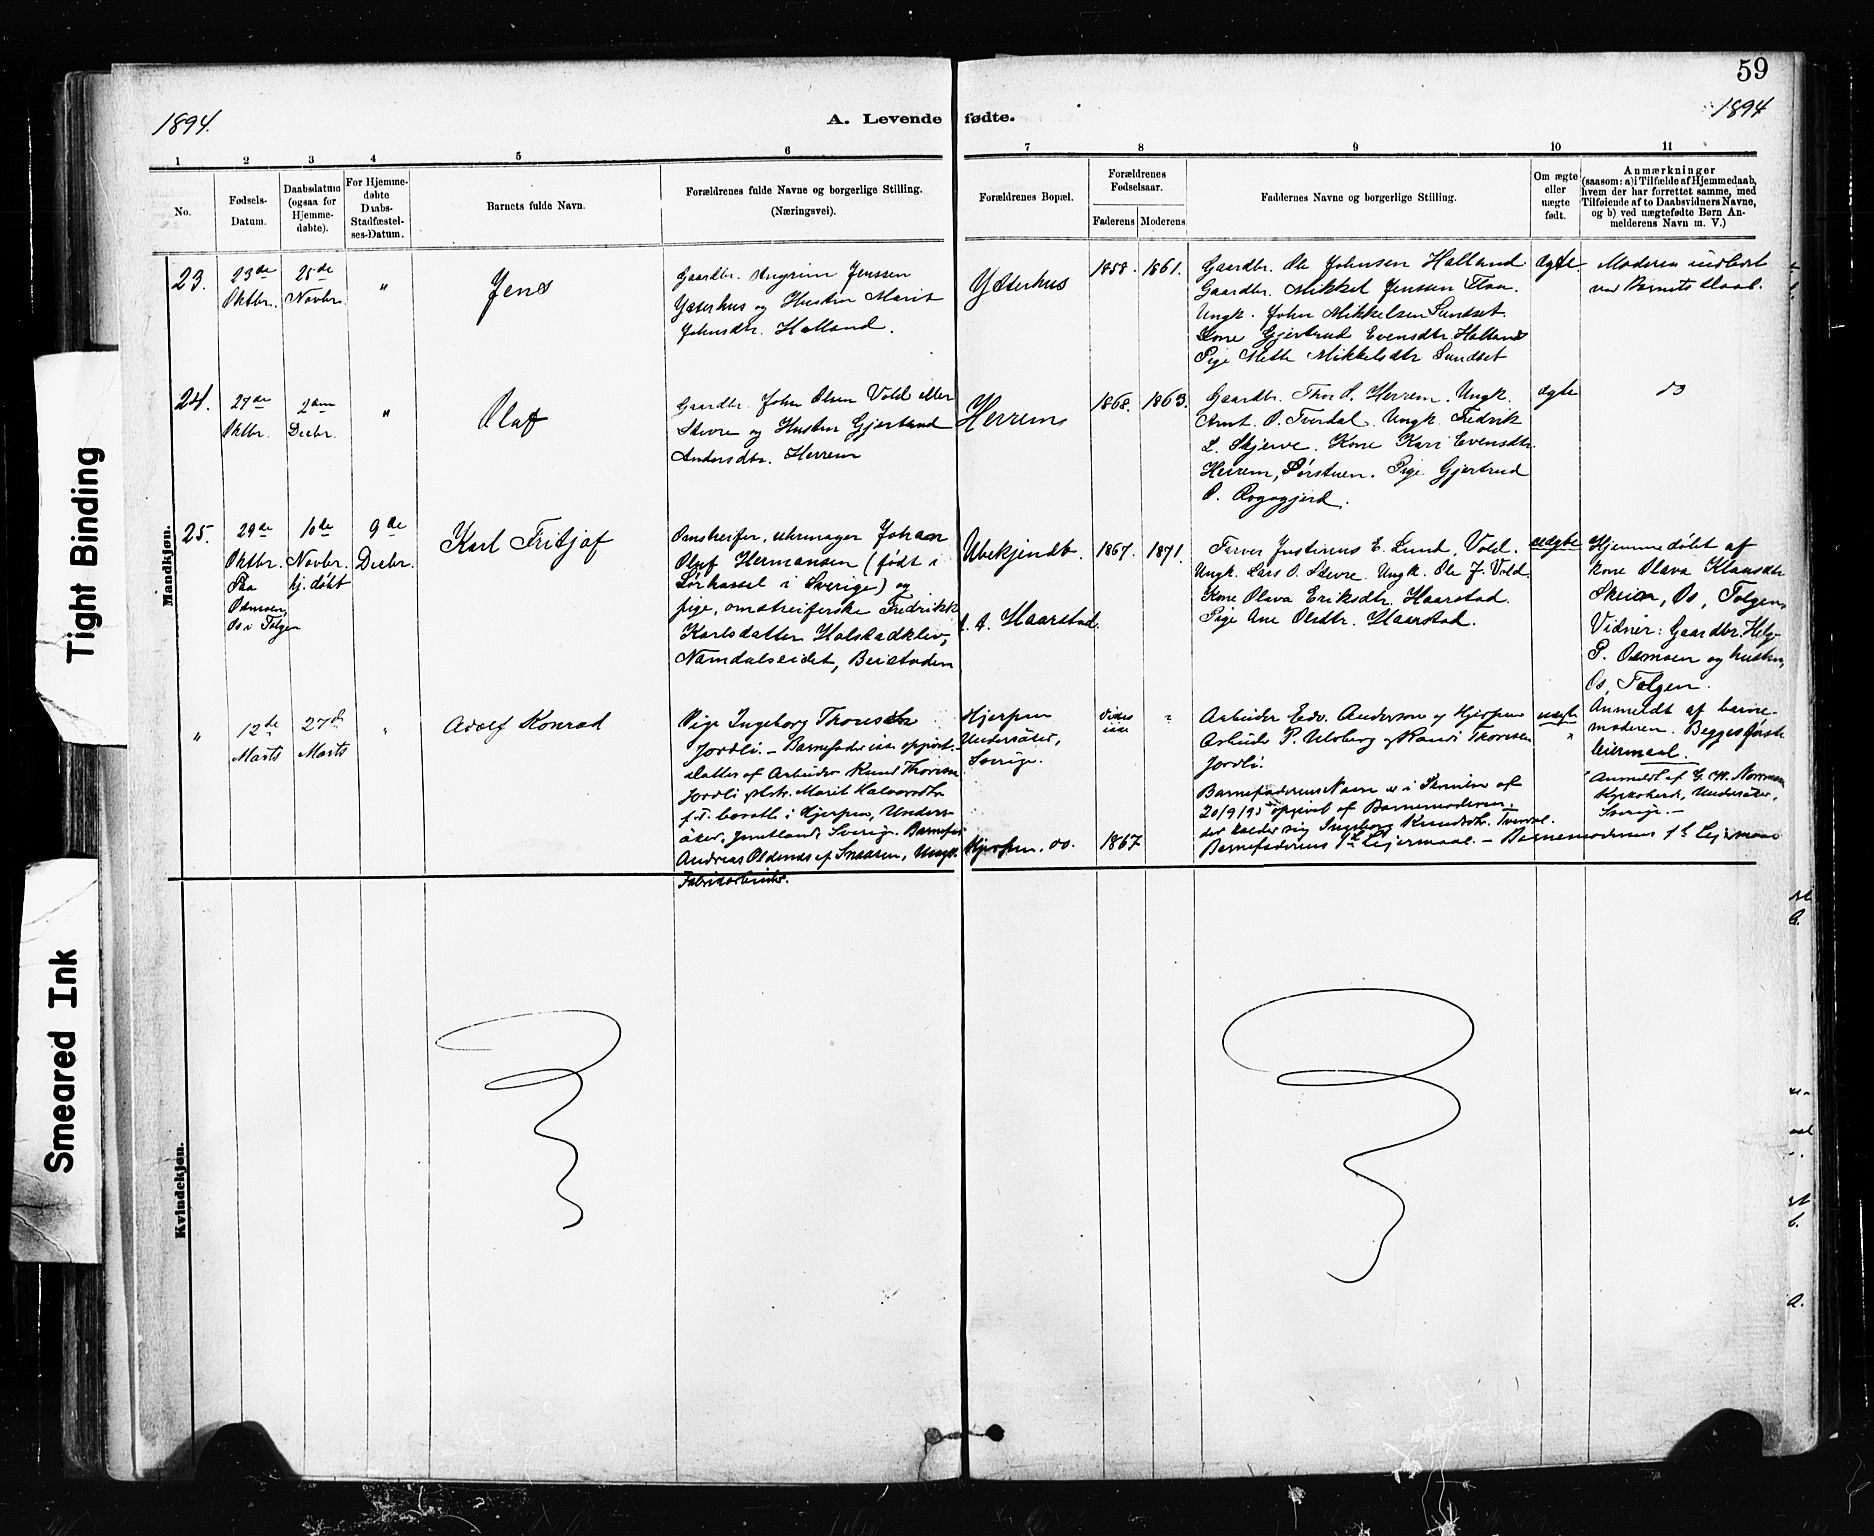 59
1894.
A. Levende fødte.
1894
1 2 3 4 5 6 7 8 9 10 11
No.
Fødsels-
Datum.
Daabsdatum
(ogsaa for
Hjemme-
døbte).
For Hjemme-
døbte
Daabs-
Stadfæstel-
ses-Datum.
Barnets fulde Navn.
Forældrenes fulde Navne og borgerlige Stilling.
(Næringsvei).
Forældrenes Bopæl.
Forældrenes
Fødselsaar.
Faderens Moderens
Faddernes Navne og borgerlige Stilling.
Om ægte
eller
uægte
født.
Anmærkninger
(saasom: a) i Tilfælde af Hjemmedaab,
hvem der har forrettet samme, med
Tilføiende af to Daabsvidners Navne,
og b) ved uægtefødte Børn An-
melderens Navn m. V.)
Mandkjøn.
23.
23de
Oktbr.
25de
Novbr.
"
Jens
Gaardbr. Ingrim Jenssen
Ysterhus og Hustru Marit
Johnsdtr. Halland.
Ysterhus
1858. 1861.
Gaardbr. Ole Johnsen Halland
Gaardbr. Mikkel Jenssen Flaa.
Ungk. John Mikkelsen Sundset.
Kone Gjertrud Evensdtr. Halland
Pige Mette Mikkelsdtr Sundset
ægte
Moderen indledet
ved Barnets Daab.
24.
27de
Oktbr.
2den
Decbr.
"
Olaf
Gaardbr. John Olsen Vold eller
Stevre og Hustru Gjertrud
Andersdtr. Herrem
Herrem
1868. 1863.
Gaardbr. Thor O. Herrem. Ungk.
Arnt O. Tverdal. Ungk. Fredrik
L. Skjerve. Kone Kari Evensdtr.
Herrem, Sørstuen. Pige Gjertrud
O. Rogogjerd.
ægte
do
25.
29de
Oktbr.
Paa
Osmoen,
Os i Tolgen
10de
Novbr.
hj. døbt
9de
Decbr.
Karl Fritjof
Omstreifer, uhrmager Johan
Oluf Hermansen (født i
Sørkassel i Sverige) og
pige, omstreiferske Fredrikke
Karlsdatter Holstadkleiv,
Namdalseidet, Beistaden
Ubekjendt.
f. t. Haarstad.
1867. 1871.
Farver Justinus E. Lund, Vold.
Ungk. Lars O. Stevre. Ungk. Ole J. Vold
Kone Olava Eriksdtr. Haarstad.
Pige Ane Olsdtr. Haarstad.
uægte
Hjemmedøbt af
kone Olava Klausdtr
Skeien, Os, Tolgen.
Vidner: Gaardbr. Helge
P. Osmoen og hustru,
Os, Tolgen.
"
12de
Marts
27de
Marts
"
Adolf Konrad
Pige Ingeborg Thorisdtr
Jordli. – Barnefader ikke opgivet.
datter af Arbeider Knud Thorisen
Jordli og Hstr. Marit Halvorsdtr
f. T. bosatte i Hjerpen, Unders-
åker, Jemtland, Sverige. Barnefar
Andreas Oldenas af Snaasen, Ungk.
Fabrikarbeider.
Hjerpen
Undersåker,
Sverige.
Hjerpen. do.
Vides
ikke
"
1867
Arbeider Edv. Anderson og Hjerpen
Arbeider P. Ulvberg og Randi Thoresen
Jordli.
Barnefaderens Navn er i Skrivelse af
20/9/95 opgivet af Barnemoderen.
der kalder sig Ingeborg Knudsdtr. Tverdal.
Barnefaderens 1ste Leiermaal. – Barnemoderens 1ste Leiermaal
uægte
"
Anmeldt af barne-
moderen. Begges første
leiermaal.
Anmeldt af G. W. Norrman
Kyrkoherde, Undersåker,
Sverige. –
Kvindekjøn.
Tight Binding
Smeared Ink